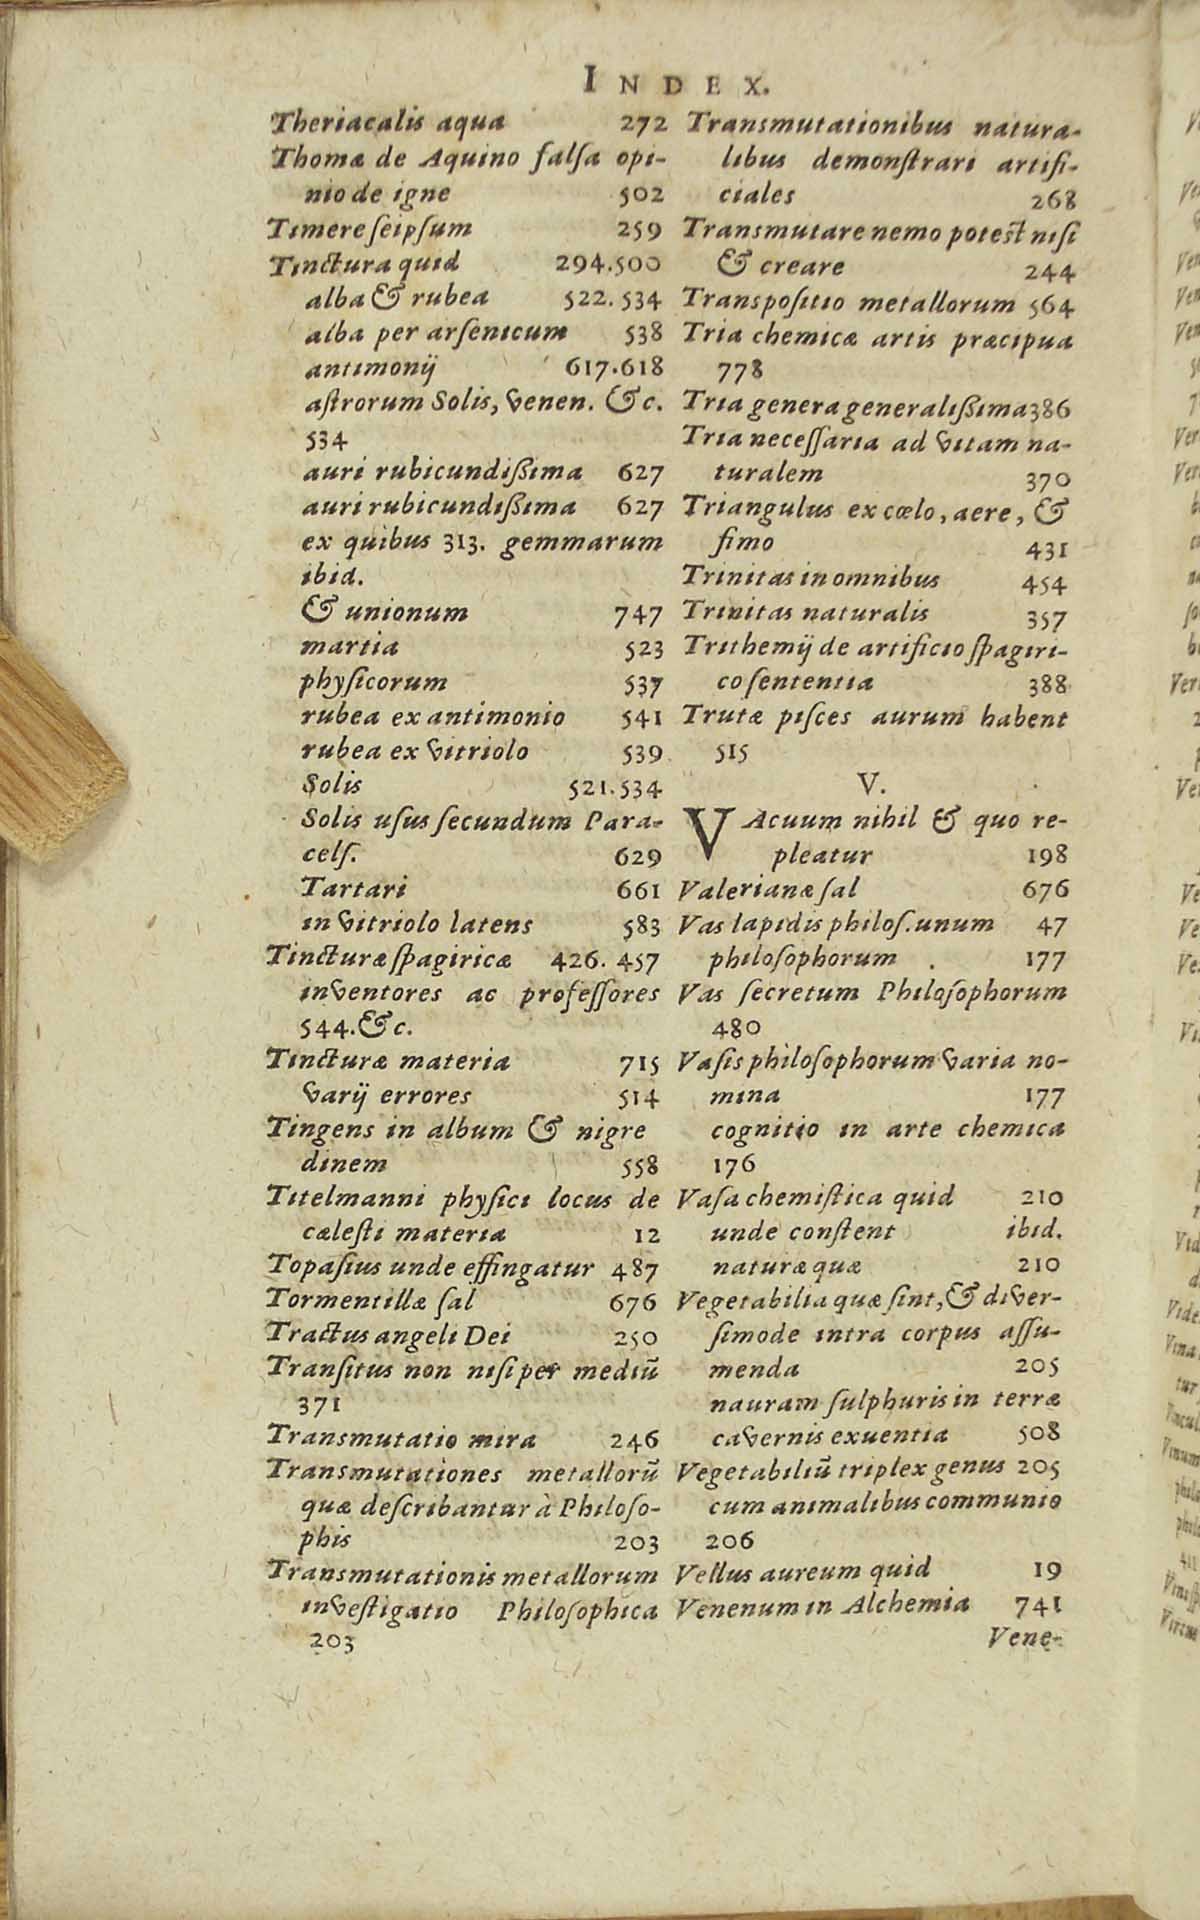 INDEX.
Theriacalis aqua 272
Thomæ de Aquino falſa opi-
nio de igne 502
Timere ſeipſum 259
Tinctura quid 294.500
alba & rubea 522. 534
alba per arſenicum 538
antimonij 617.618
aſtrorum Solis, venen. &c.
534
auri rubicundiſſima 627
auri rubicundiſſima 627
ex quibus 313. gemmarum
ibid.
& unionum 747
martia 523
phyſicorum 537
rubea ex antimonio 541
rubea ex vitriolo 539
Solis 521.534
Solis uſus ſecundum Para-
celſ. 629
Tartari 661
in vitriolo latens 583
Tincturæ ſpagiricæ 426. 457
inventores ac profeſſores
544.&c.
Tincturæ materia 715
varij errores 514
Tingens in album & nigre
dinem 558
Titelmanni phyſici locus de
cæleſti materia 12
Topaſius unde effingatur 487
Tormentillæ ſal 676
Tractus angeli Dei 250
Tranſitus non niſi per mediū
371
Transmutatio mira 246
Transmutationes metallorū
quæ deſcribantur à Philoſo-
phis 203
Transmutationis metallorum
inveſtigatio Philoſophica
203
Transmutationibus natura-
libus demonſtrari artifi-
ciales 268
Transmutare nemo poteſt niſi
& creare 244
Tranſpoſitio metallorum 564
Tria chemicæ artis præcipua
778
Tria genera generaliſſima 386
Tria neceſſaria ad vitam na-
turalem 370
Triangulus ex cœlo, aere, &
fimo 431
Trinitas in omnibus 454
Trinitas naturalis 357
Trithemij de artificio ſpagiri-
co ſententia 388
Trutæ piſces aurum habent
515
V.
VAcuum nihil & quo re-
pleatur 198
Valerianæ ſal 676
Vas lapidis philoſ. unum 47
philoſophorum 177
Vas ſecretum Philoſophorum
480
Vaſis philoſophorum varia no-
mina 177
cognitio in arte chemica
176
Vaſa chemiſtica quid 210
unde conſtent ibid.
naturæ quæ 210
Vegetabilia quæ ſint, & diver-
ſimode intra corpus aſſu-
menda 205
nauram ſulphuris in terræ
cavernis exuentia 508
Vegetabiliū triplex genus 205
cum animalibus communio
206
Vellus aureum quid 19
Venenum in Alchemia 741
Vene-